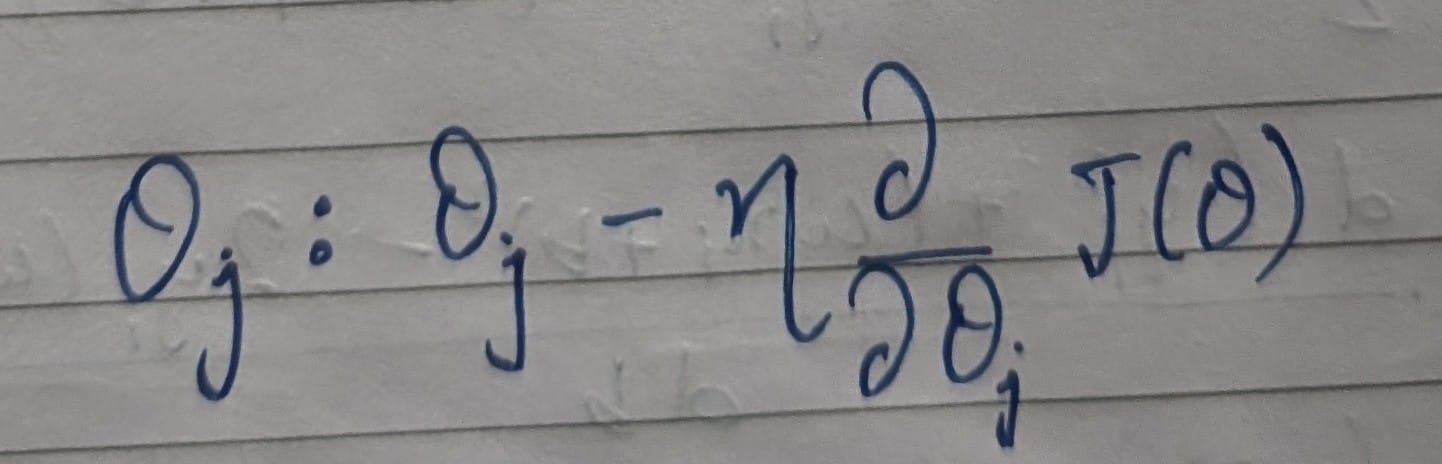 θⱼ : θⱼ - η ∂/∂θⱼ J(θ)